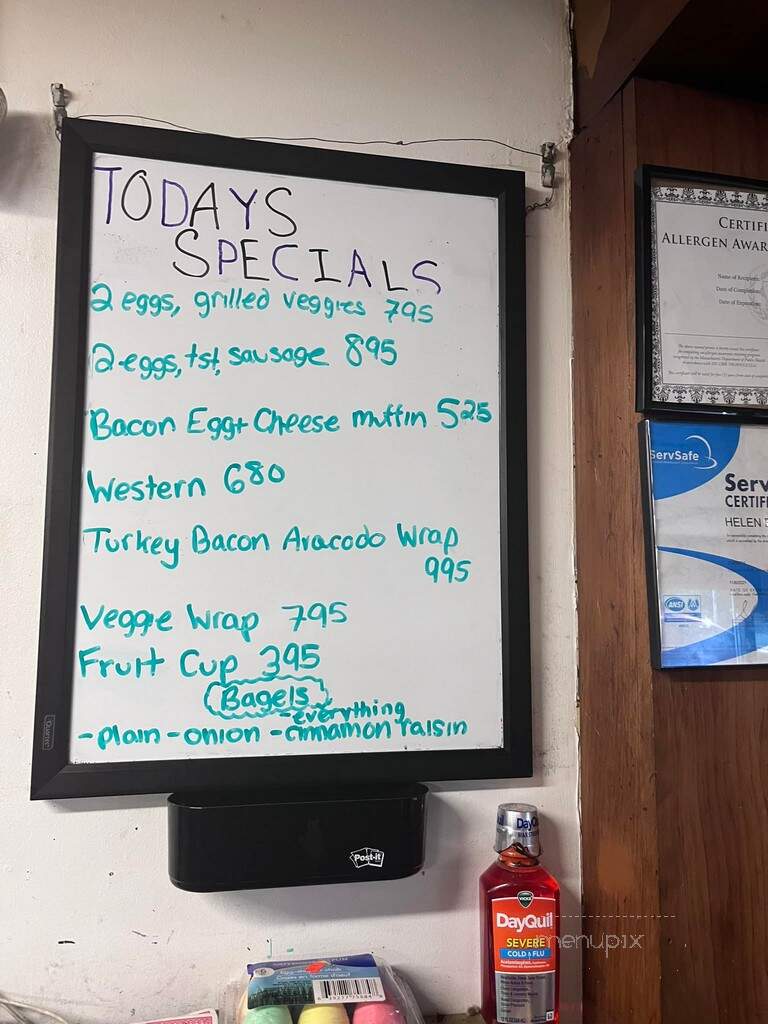 TODAYS
SPECIALS
2 eggs, grilled veggies 795
2 eggs, tst, sausage 895
Bacon Egg + Cheese muffin 525
Western 680
Turkey Bacon Avacodo Wrap
995
Veggie Wrap 795
Fruit Cup 395
Bagels
- everything
- plain - onion - cinnamon raisin
Quartet
Post-it
CERTIFI
ALLERGEN AWAR
Name of Recipient:
Date of Completion:
Date of Expiration:
ServSafe
Serv
CERTIF
HELEN
ANSI
DayQ
VICKS
DayQuil
SEVERE
COLD & FLU
menupix